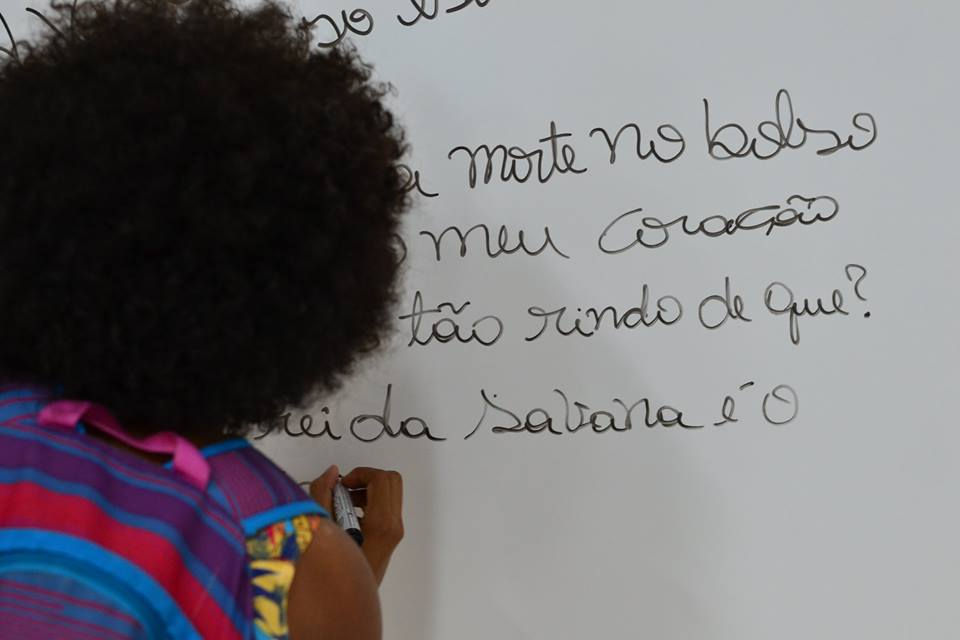 morte no bolso
meu coração
tão rindo de que?
rei da savana é o